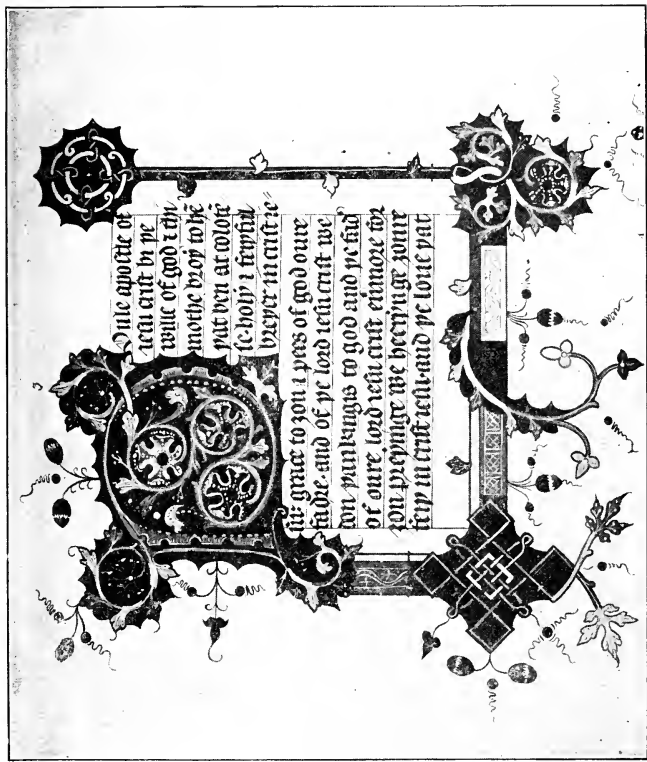 Poule apostle of
iesu crist bi þe
wille of god ⁊ thi
mothe broþ to hē
þat ben at colose
se holy ⁊ feiþful
breþer in crist ie
su: grace to ȝou ⁊ pees of god oure
fadre and of þe lord iesu crist we
don þankingis to god and þe fad
of oure lord iesu crist ermore for
ȝou preyinge we heerynge ȝoure
feiþ in crist iesu and þe loue þat